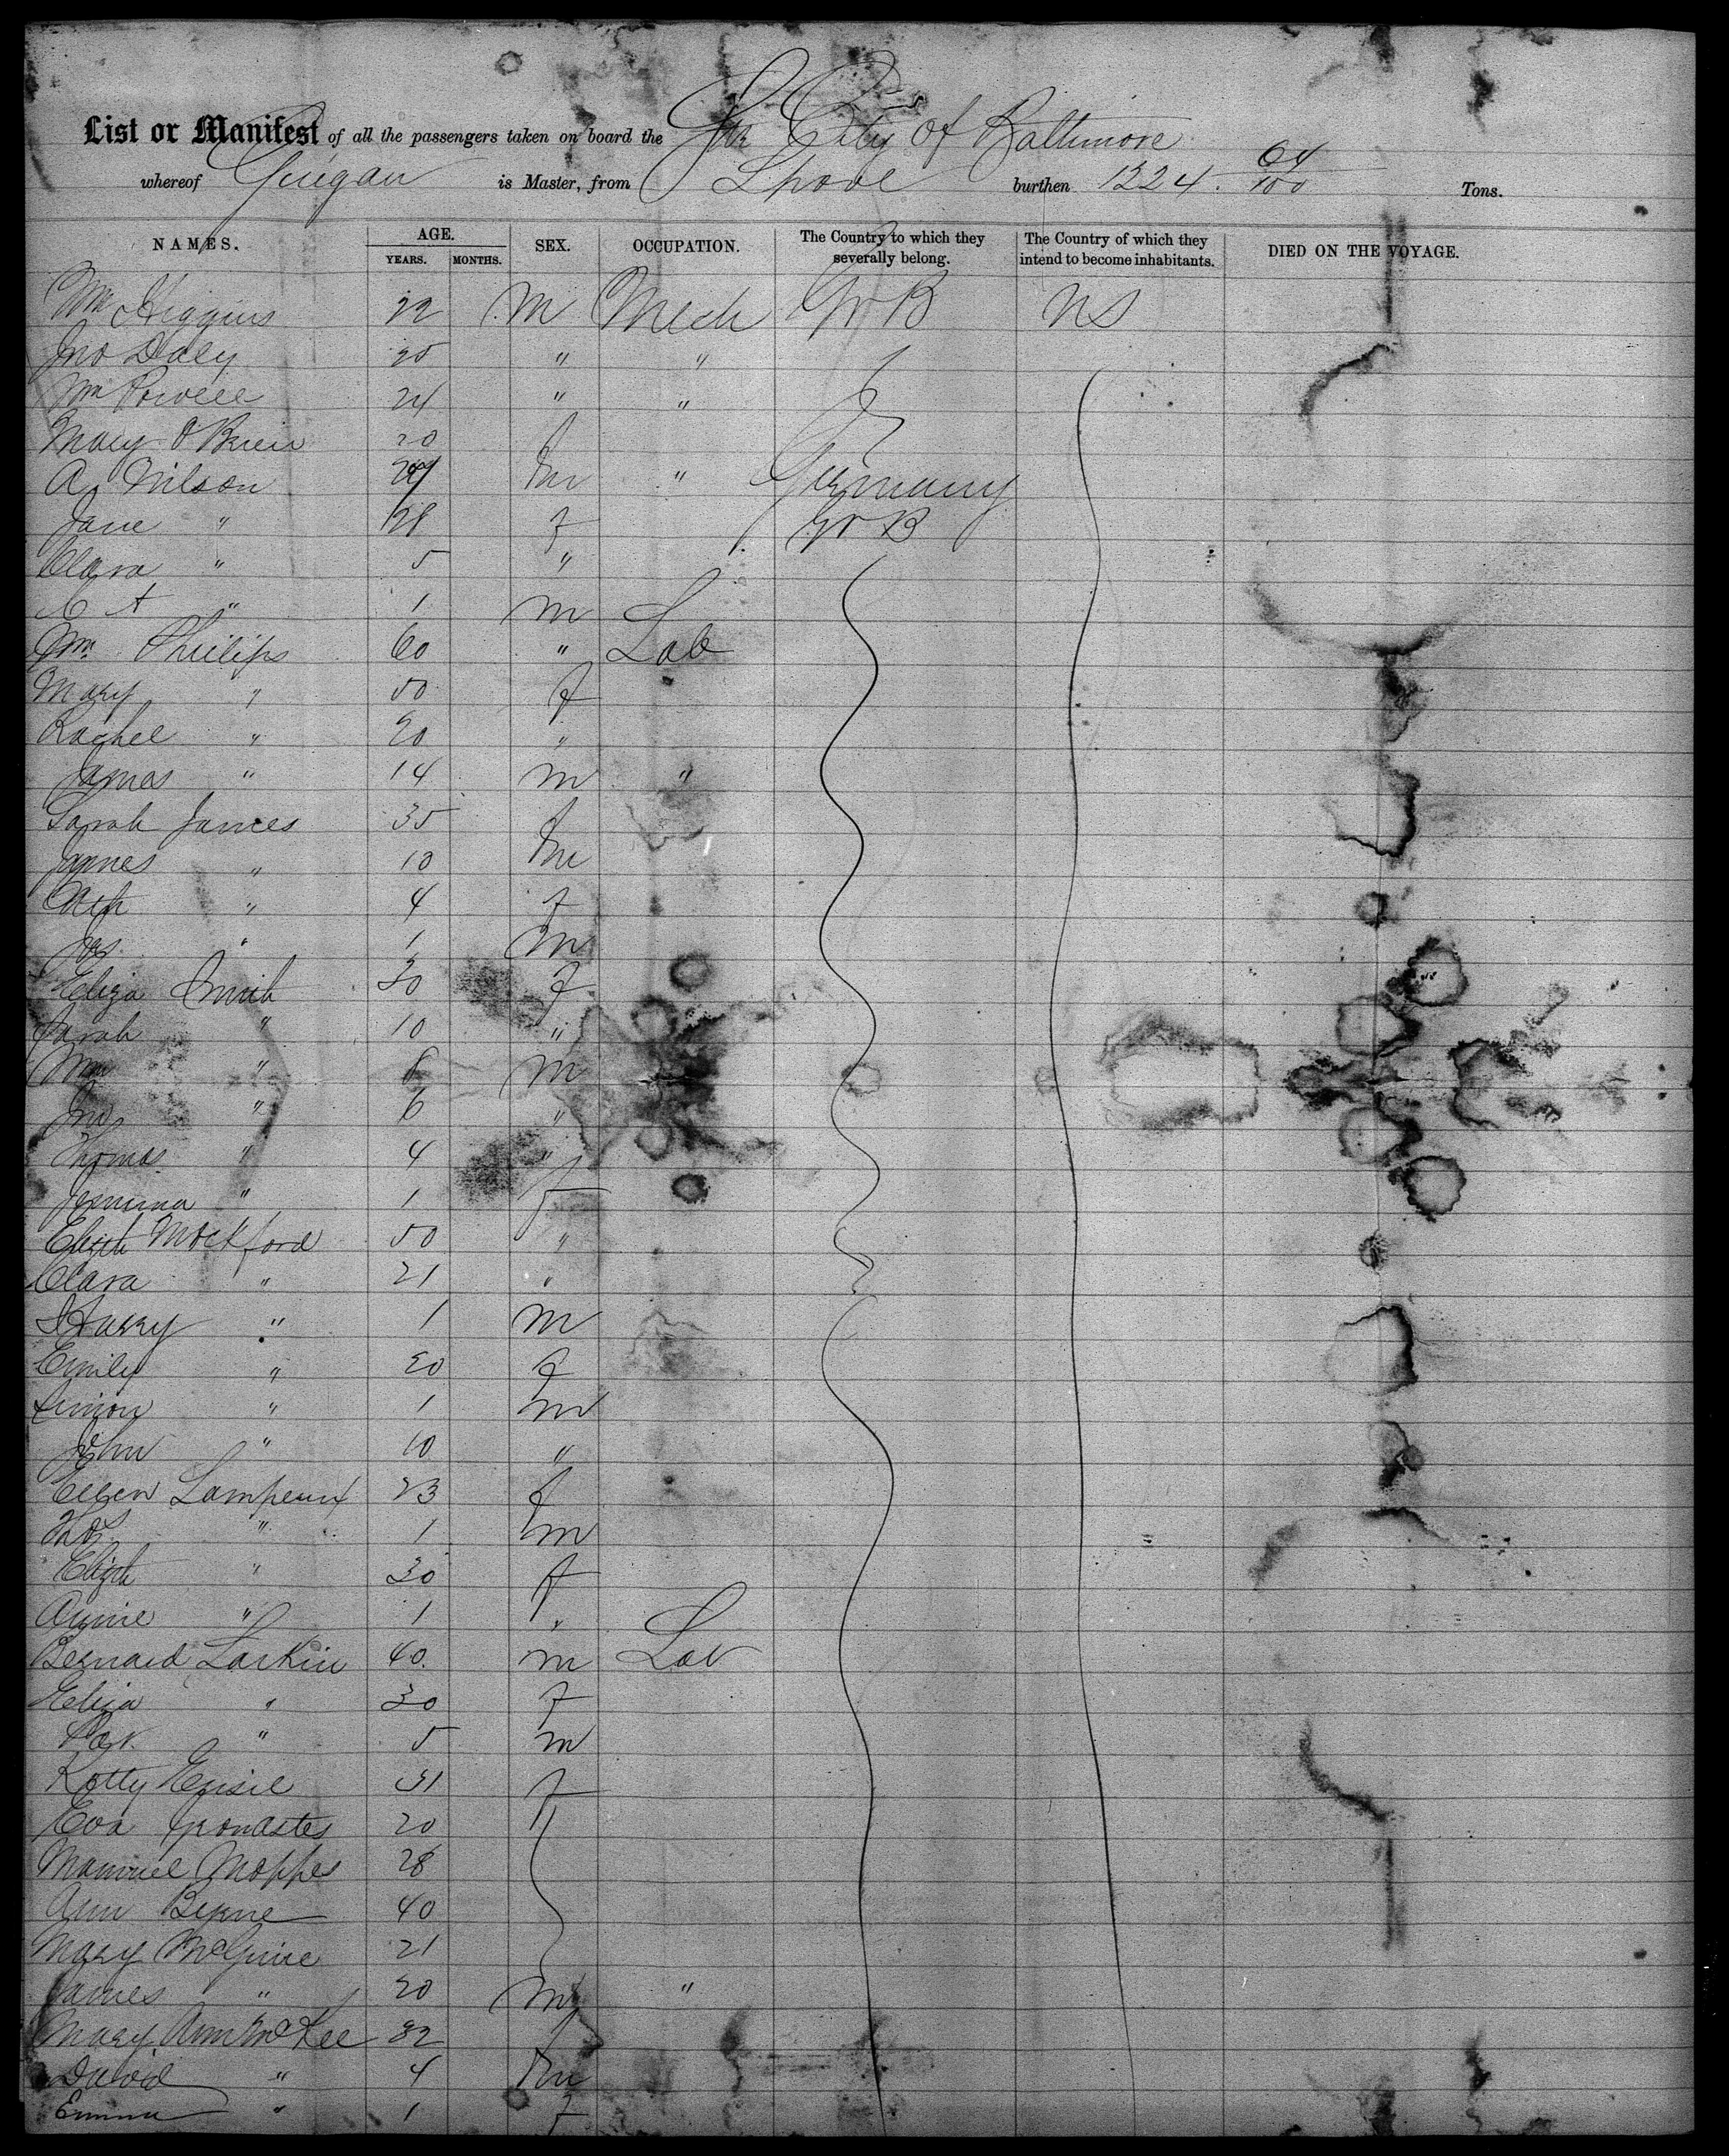 List or Manifest of all the passengers taken on board the Str City of Baltimore
whereof Guigan is Master, from Lpool burthen 1324. 64/100 Tons.
NAMES. AGE. SEX. OCCUPATION. The Country to which they severally belong. The Country of which they intend to become inhabitants. DIED ON THE VOYAGE.
YEARS. MONTHS.
Wm Higgins 22 m Mech Gr B US
Jno Daly 20 " "
Wm Powell 24 " "
Mary O'Brien 20 f
A. Nilson m " Germany
Jane " 28 f Gr B
Clara " 5 "
" 1 m
Wm Philips 60 " Lab
Mary " 50 f
Rachel " 20 "
James " 14 m "
Sarah James 35
James " 10 m
" 4 f
Jas " 1 m
Eliza Smith 30 f
Sarah " 10 "
Wm " 8 m
Jno " 6 "
Thomas " 4 "
Jemima " 1 f
Elizth Mockford 50 "
Clara " 21 "
Harry " 1 m
Emily " 20 f
Simon " 1 m
John " 10 "
Ellen 23 f
Thos " 1 m
Elizth " 30 f
Annie " 1 "
Bernard Larkin 40 m Lab
Eliza " 30 f
" 5 m
Kitty 31 f
Eva 20
28
Ann Byrne 40
Mary McGuire 21
James " 20 m "
Mary Ann McKee 32 f
David " 4 m
Emma " 1 f